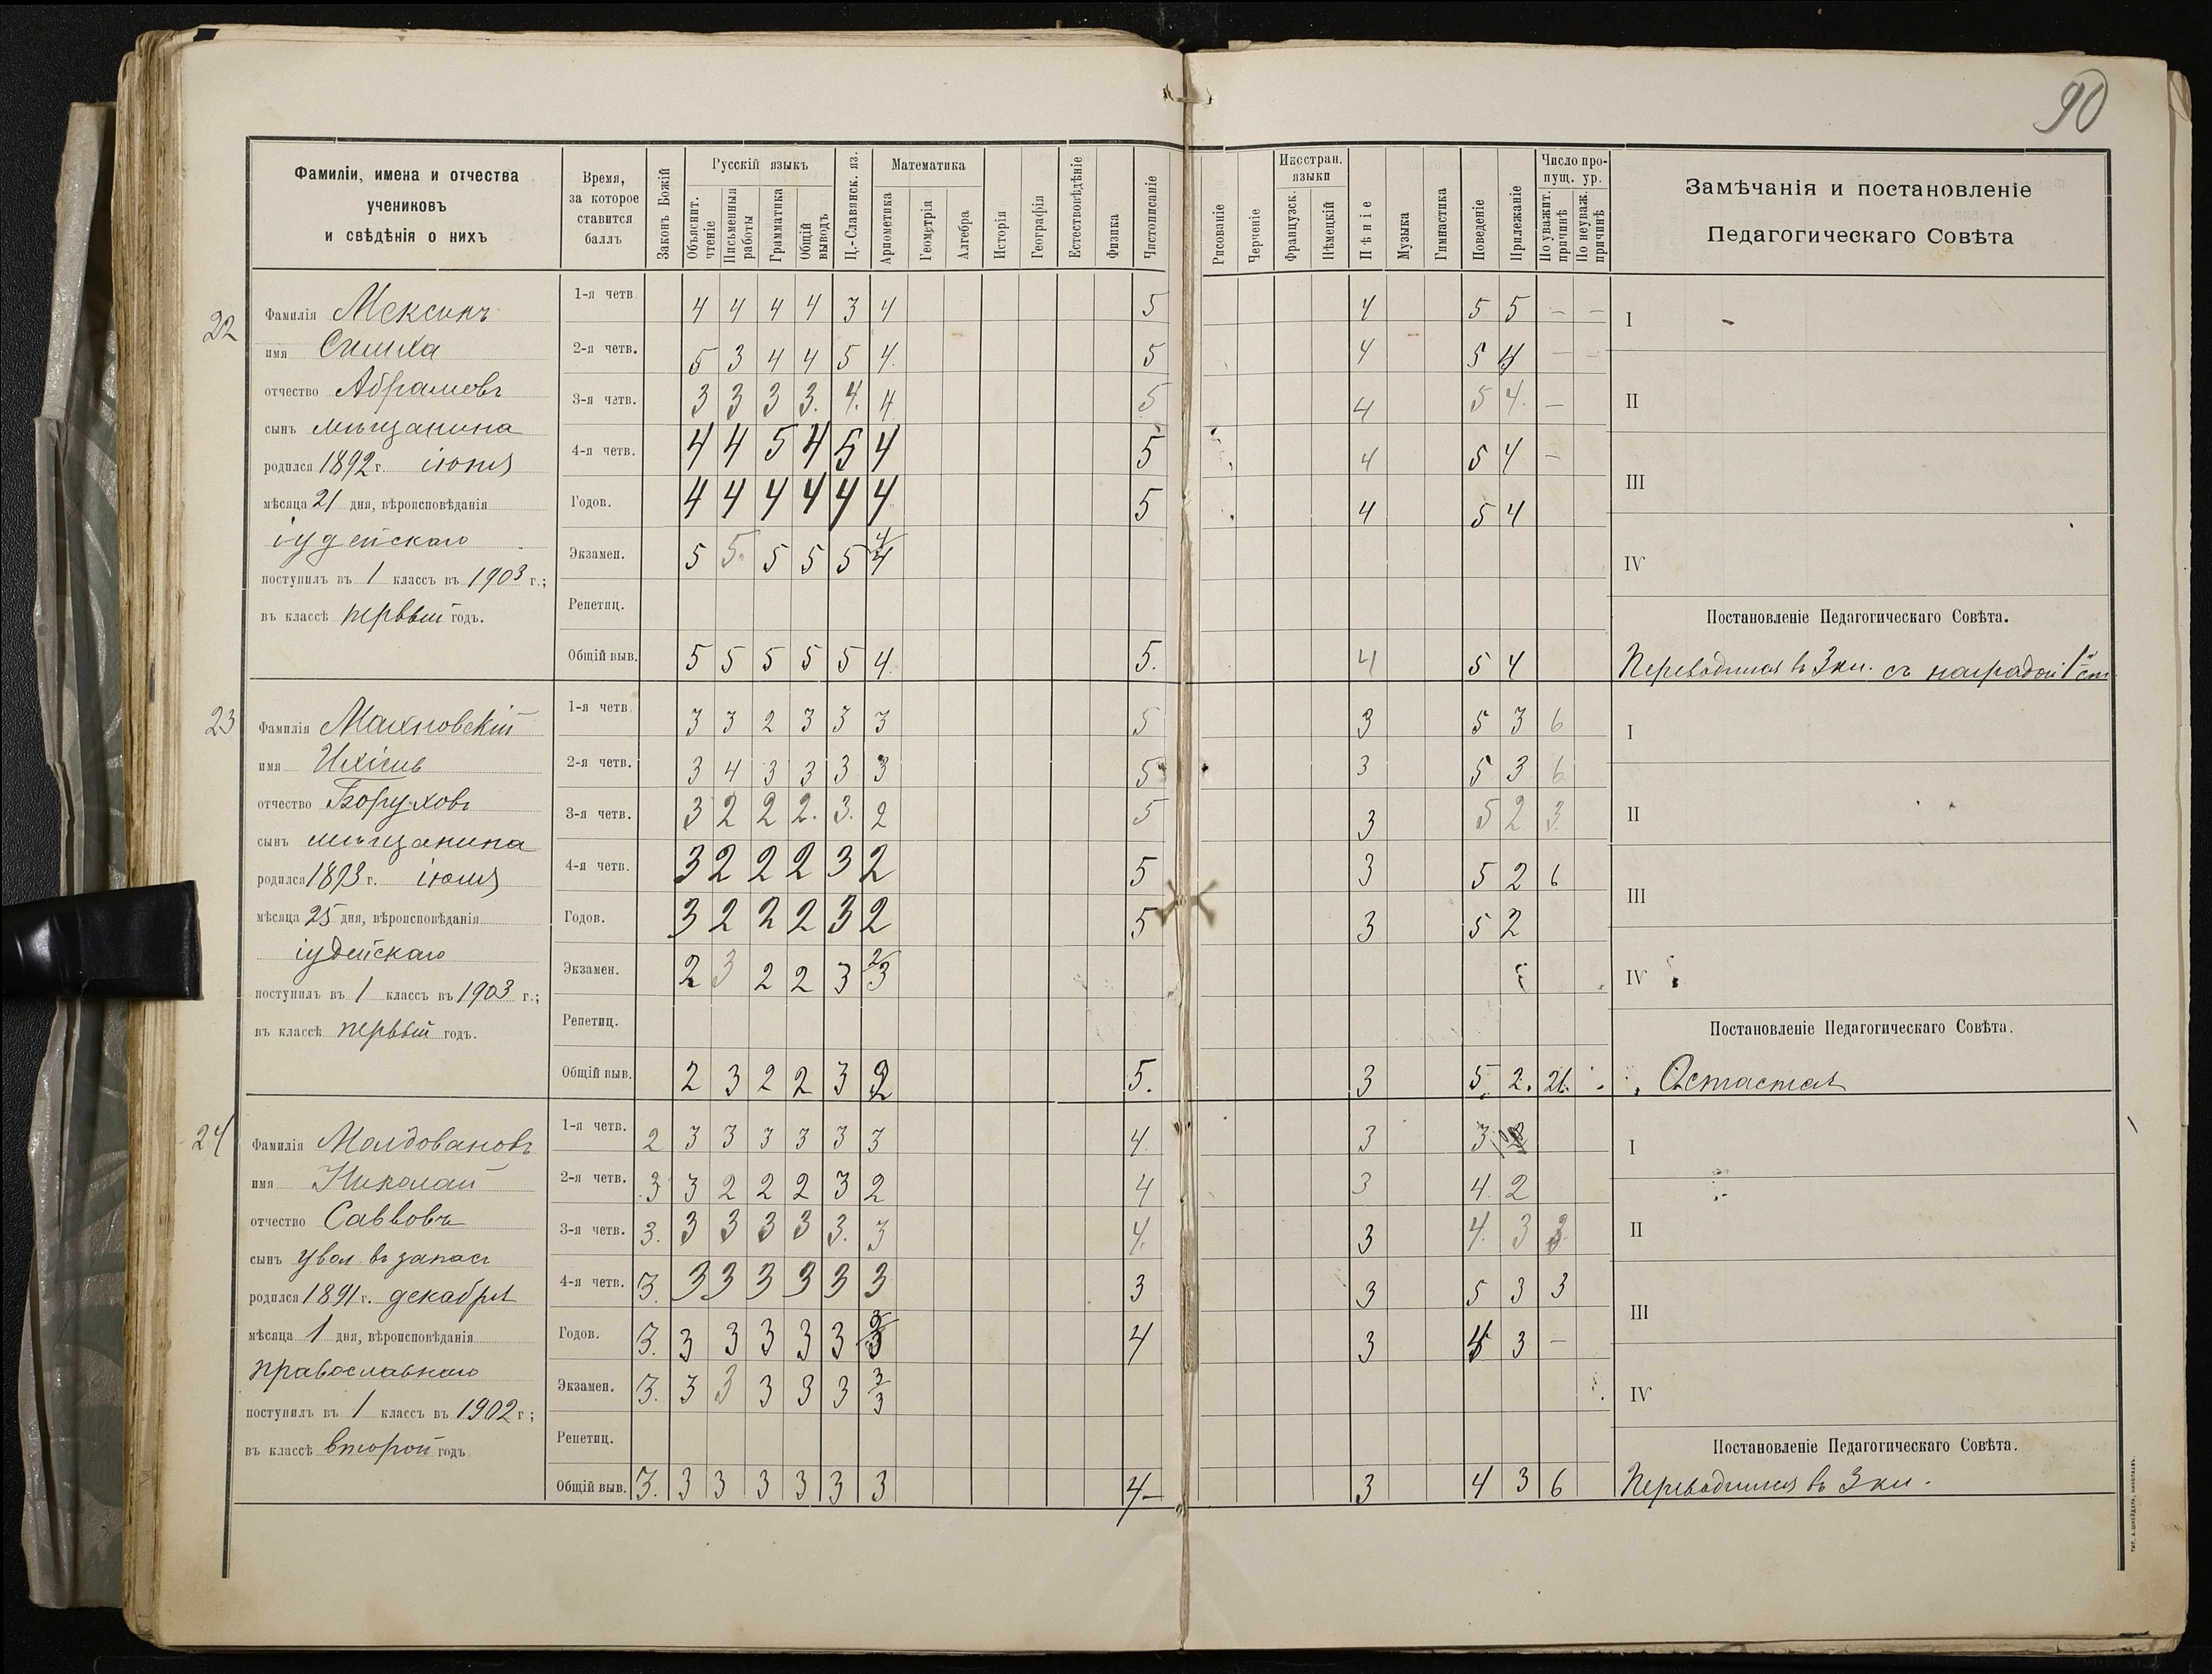 90
Фамиліи, имена и отчества
учениковъ
и свѣдѣнія о нихъ
Время,
за которое
ставится
баллъ
Законъ Божій
Русскій языкъ
Объяснит. чтеніе
Письменныя работы
Грамматика
Общій выводъ
Ц.-Славянск. яз.
Математика
Ариѳметика
Геометрія
Алгебра
Исторія
Географія
Естествовѣдѣніе
Физика
Чистописаніе
Рисованіе
Черченіе
Иностран. языки
Французск.
Нѣмецкій
Пѣніе
Музыка
Гимнастика
Поведеніе
Прилежаніе
Число про-
пущ. ур.
По уважит. причинѣ
По неуваж. причинѣ
Замѣчанія и постановленіе
Педагогическаго Совѣта
22
Фамилія Мексинъ
имя Симха
отчество Абрамовъ
сынъ мѣщанина
родился 1892 г. іюня
мѣсяца 21 дня, вѣроисповѣданія
іудейскаго
поступилъ въ 1 классъ въ 1903 г.;
въ классѣ первый годъ.
1-я четв. 4 4 4 4 3 4 5 4 5 5 — —
2-я четв. 5 3 4 4 5 4. 5 4 5 4 — —
3-я четв. 3 3 3 3. 4. 4 5 4 5 4. —
4-я четв. 4 4 5 4 5 4 5 4 5 4 —
Годов. 4 4 4 4 4 4 5 4 5 4
Экзамен. 5 5. 5 5 5 4/4
Репетиц.
Общій выв. 5 5 5 5 5 4. 5. 4 5 4
I
II
III
IV
Постановленіе Педагогическаго Совѣта.
Переводится въ 3 кл. съ наградой 1й ст
23
Фамилія Махновскій
имя Ихіиль
отчество Боруховъ
сынъ мѣщанина
родился 1893 г. іюля
мѣсяца 25 дня, вѣроисповѣданія
іудейскаго
поступилъ въ 1 классъ въ 1903 г.;
въ классѣ первый годъ.
1-я четв. 3 3 2 3 3 3 5 3 5 3 6
2-я четв. 3 4 3 3 3 3 5 3 5 3 6
3-я четв. 3 2 2 2. 3. 2 5 3 5 2 3.
4-я четв. 3 2 2 2 3 2 5 3 5 2 6
Годов. 3 2 2 2 3 2 5 3 5 2
Экзамен. 2 3 2 2 3 2/3
Репетиц.
Общій выв. 2 3 2 2 3 2 5. 3 5. 2. 21.
I
II
III
IV
Постановленіе Педагогическаго Совѣта.
Остается
24
Фамилія Молдовановъ
имя Николай
отчество Савовъ
сынъ увол. въ запасъ
родился 1891 г. декабря
мѣсяца 1 дня, вѣроисповѣданія
православнаго
поступилъ въ 1 классъ въ 1902 г;
въ классѣ второй годъ
1-я четв. 2 3 3 3 3 3 3 4. 3 3
2-я четв. 3 3 2 2 2 3 2 4 3 4. 2
3-я четв. 3. 3 3 3 3 3. 3 4. 3 4. 3 3.
4-я четв. 3. 3 3 3 3 3 3 3 3 5 3 3
Годов. 3. 3 3 3 3 3 3/3 4 3 4 3 —
Экзамен. 3. 3 3 3 3 3 3/3
Репетиц.
Общій выв. 3. 3 3 3 3 3 3 4— 3 4 3 6
I
II
III
IV
Постановленіе Педагогическаго Совѣта.
Переводится въ 3 кл.
ТИП. А. ШНЕЙДЕРЪ, НИКОЛАЕВЪ.